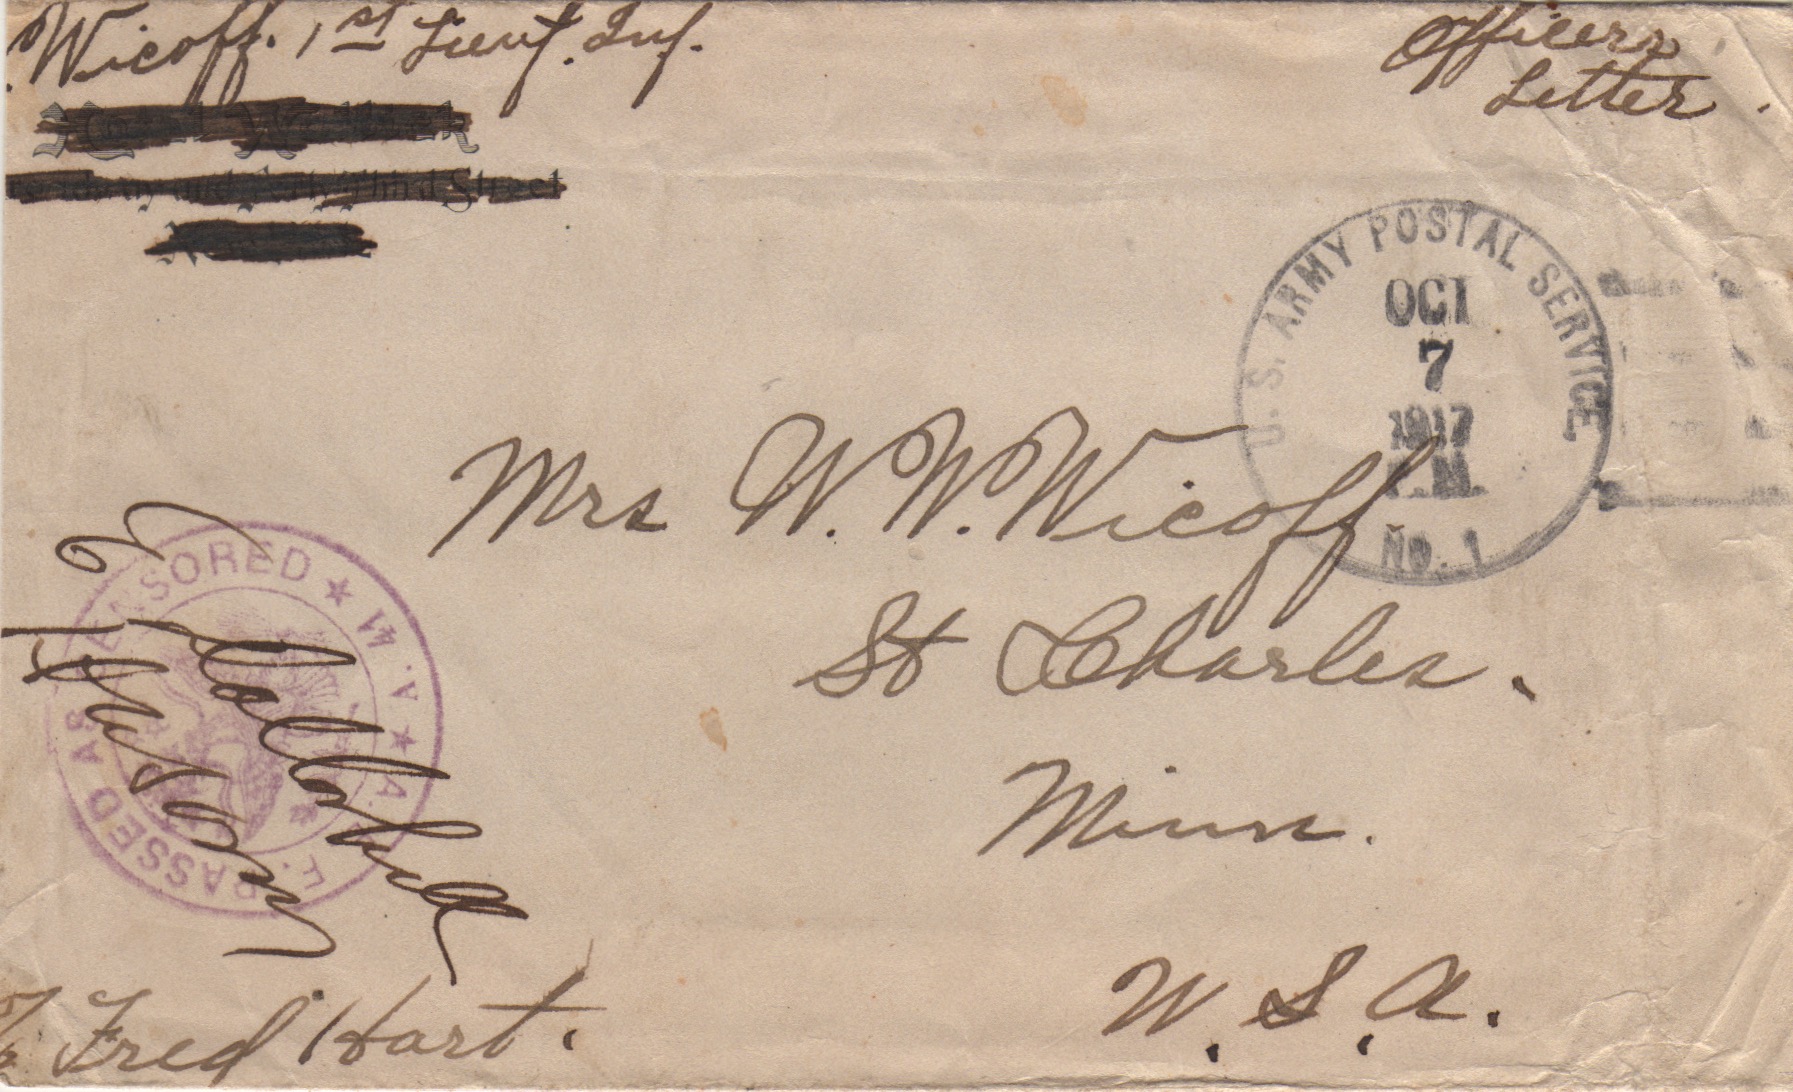 Wicoff. 1st Lieut. Inf.
Officers
Letter.
Third Street
U.S. ARMY POSTAL SERVICE
OCT
7
1917
P.M.
No. 1
Mrs W. W. Wicoff
St Charles.
Minn.
U. S. A.
PASSED AS CENSORED ★ W. A. ★ A. E.
Fred Hart.